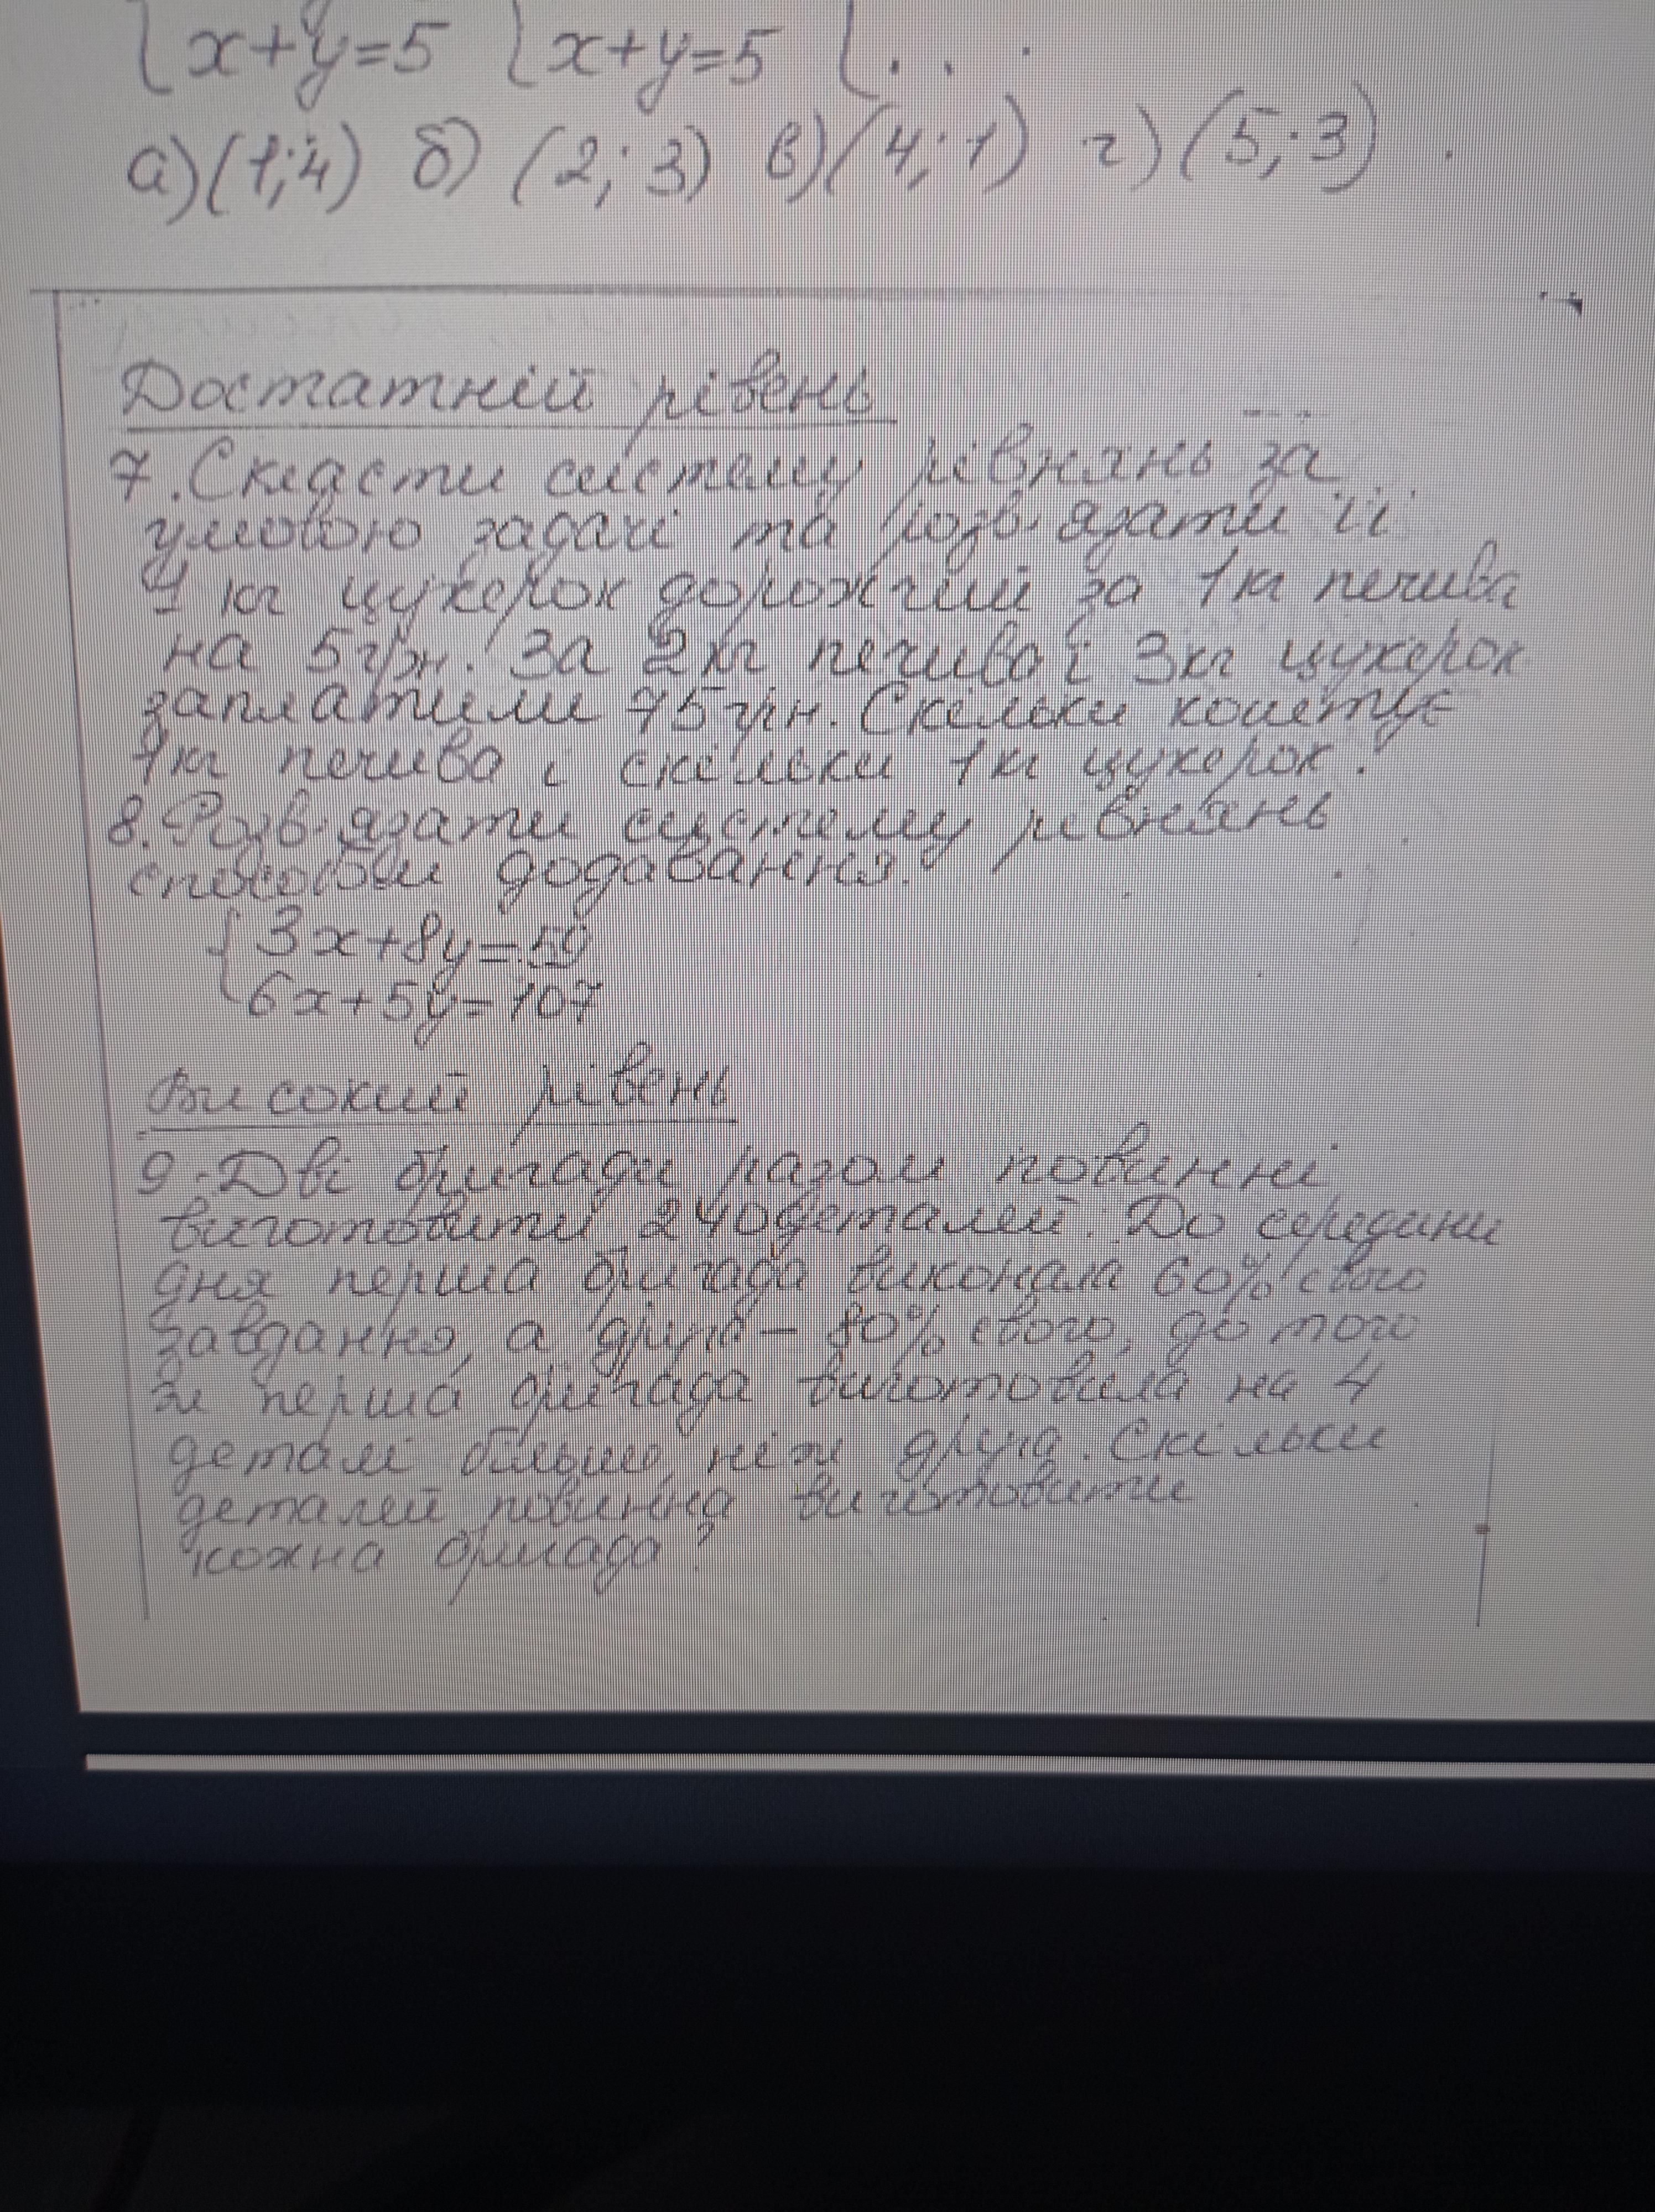 { x+y=5 { x+y=5 { . . .
а)(1;4) б) (2; 3) в)(4; 1) г) (5; 3)
Достатній рівень
7. Скласти систему рівнянь за
умовою задачі та розв'язати її
1 кг цукерок дорожчий за 1кг печива
на 5грн. За 2кг печива і 3кг цукерок
заплатили 75грн. Скільки коштує
1кг печива і скільки 1кг цукерок?
8. Розв'язати систему рівнянь
способом додавання.
{ 3x+8y=59
6x+5y=107
Високий рівень
9. Дві бригади разом повинні
виготовити 240деталей. До середини
дня перша бригада виконала 60% свого
завдання, а друга – 80% свого, до того
ж перша бригада виготовила на 4
деталі більше, ніж друга. Скільки
деталей повинна виготовити
кожна бригада?